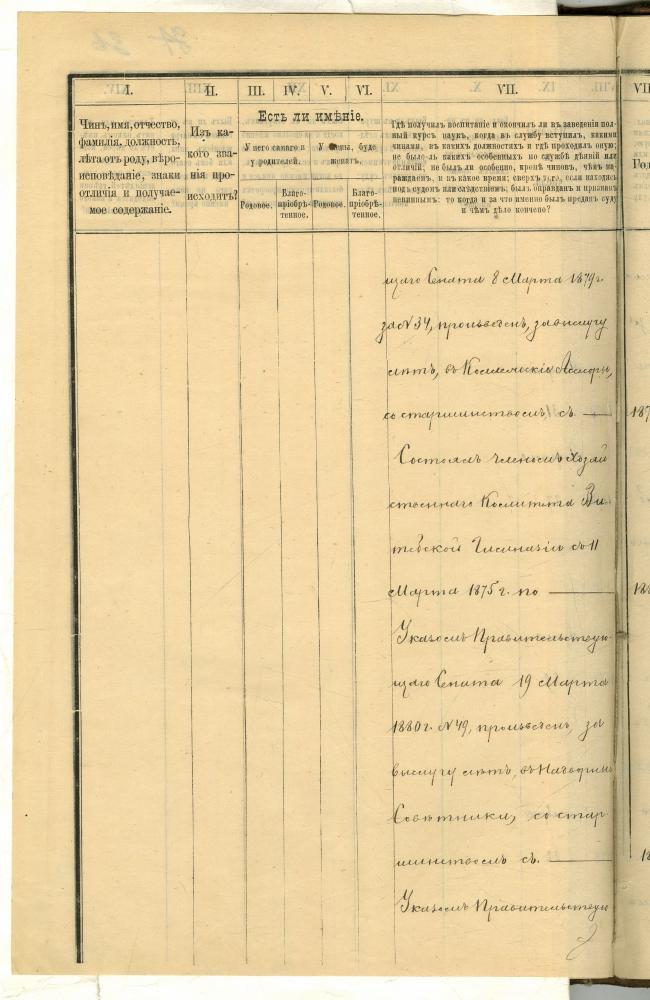 I. II. III. IV. V. VI. VII. VII
Чинъ, имя, отчество,
фамилія, должность,
лѣта отъ роду, вѣро-
исповѣданіе, знаки
отличія и получае-
мое содержаніе.
Изъ ка-
кого зва-
нія про-
исходитъ?
Есть ли имѣніе.
У него самаго и
у родителей.
У жены, буде
женатъ.
Родовое.
Благо-
пріобрѣ-
тенное.
Родовое.
Благо-
пріобрѣ-
тенное.
Гдѣ получилъ воспитаніе и окончилъ ли въ заведеніи пол-
ный курсъ наукъ, когда въ службу вступилъ, какими
чинами, въ какихъ должностяхъ и гдѣ проходилъ оную;
не было ль какихъ особенныхъ по службѣ дѣяній или
отличій; не былъ ли особенно, кромѣ чиновъ, чѣмъ на-
граждаемъ, и въ какое время; сверхъ того, если находясь
подъ судомъ или слѣдствіемъ, былъ оправданъ и признанъ
невиннымъ: то когда и за что именно былъ преданъ суду
и чѣмъ дѣло кончено?
Год
щаго Сената 8 Марта 1879 г.
за № 34, произведенъ, за выслугу
лѣтъ, въ Коллежскіе Ассесоры,
со старшинствомъ, съ — 187
Состоялъ членомъ Хозяй
ственнаго Комитета Ви-
тебской Гимназіи съ 11
Марта 1875 г. по —
Указомъ Правительствую
щаго Сената 19 Марта
1880 г. № 49, произведенъ, за
выслугу лѣтъ, въ Надворные
Совѣтники, со стар
шинствомъ съ. — 18
Указомъ Правительствую